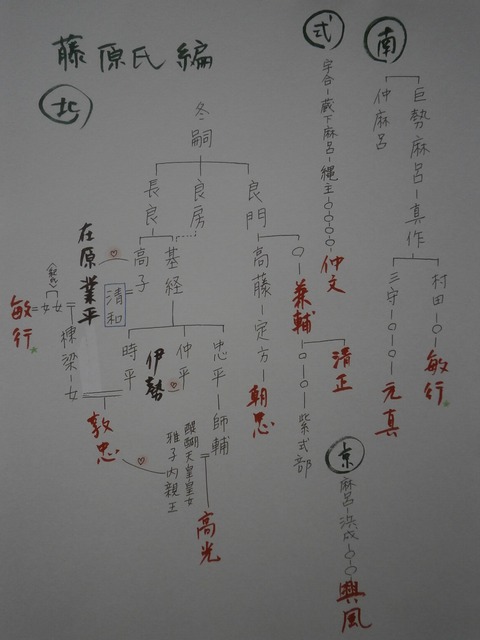 藤原氏編
南
巨勢麻呂-真作
仲麻呂
村田-○-敏行
三守-○-○-元真
式
宇合-蔵下麻呂-縄主-○○○○-仲文
北
冬嗣
良門
良房
長良
○-兼輔
清正
○-○-紫式部
高藤-定方-朝忠
基経
高子
清和
在原業平
忠平-師輔
仲平
伊勢
時平
高光
醍醐天皇皇女
雅子内親王
棟梁-女
敦忠
女
女
敏行
京
麻呂-浜成-○○-興風